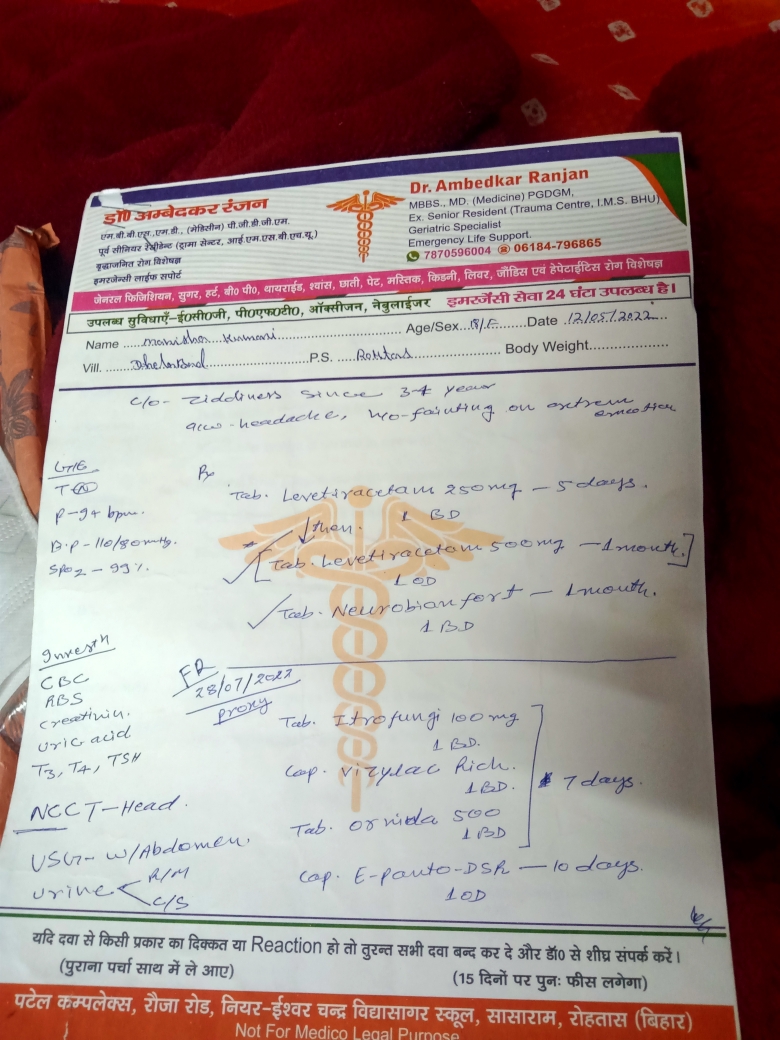 डॉ0 अम्बेदकर रंजन
एम.बी.बी.एस.,एम.डी., (मेडिसीन) पी.जी.डी.जी.एम.
पूर्व सीनियर रेजीडेन्ट (ट्रामा सेन्टर, आई.एम.एस.बी.एच.यू.)
बृद्धाजनित रोग विशेषज्ञ
इमरजेन्सी लाईफ सपोर्ट
Dr. Ambedkar Ranjan
MBBS., MD. (Medicine) PGDGM,
Ex. Senior Resident (Trauma Centre, I.M.S. BHU)
Geriatric Specialist
Emergency Life Support.
7870596004 06184-796865
जेनरल फिजिशियन, सुगर, हर्ट, बी0 पी0, थायराईड, श्वांस, छाती, पेट, मस्तिक, किडनी, लिवर, जौंडिस एवं हेपेटाईटिस रोग विशेषज्ञ
उपलब्ध सुविधाएँ-ई0सी0जी, पी0एफ0टी0, ऑक्सीजन, नेबुलाईजर इमरजेंसी सेवा 24 घंटा उपलब्ध है।
Name ..... Age/Sex.....Date 12/05/2022
Vill. .....P.S. .....Body Weight.....
C/o - Ziddiness since 3-4 year
headache, H/o-fainting on extrem
G/E
T
P-94 bpm.
B.P-110/80mmHg.
SpO2 - 99%.
Rx
Tab. Levetiracetam 250mg - 5 days.
1 BD
then.
[Tab. Levetiracetam 500mg - 1 month.]
1 OD
Tab. Neurobian fort - 1 month.
1 BD
Investn
CBC
RBS
Creatinin.
Uric acid
T3, T4, TSH
NCCT-Head.
USG- W/Abdomen.
Urine R/M
C/S
28/07/2022
Proxy
Tab. Itrofungi 100 mg
1 BD.
Cap. Vizylac Rich.
1 BD.
7 days.
Tab. Ornida 500
1 BD
Cap. E-Panto-DSR - 10 days.
1 OD
यदि दवा से किसी प्रकार का दिक्कत या Reaction हो तो तुरन्त सभी दवा बन्द कर दे और डॉ0 से शीघ्र संपर्क करें।
(पुराना पर्चा साथ में ले आए) (15 दिनों पर पुनः फीस लगेगा)
पटेल कम्पलेक्स, रौजा रोड, नियर-ईश्वर चन्द्र विद्यासागर स्कूल, सासाराम, रोहतास (बिहार)
Not For Medico Legal Purpose